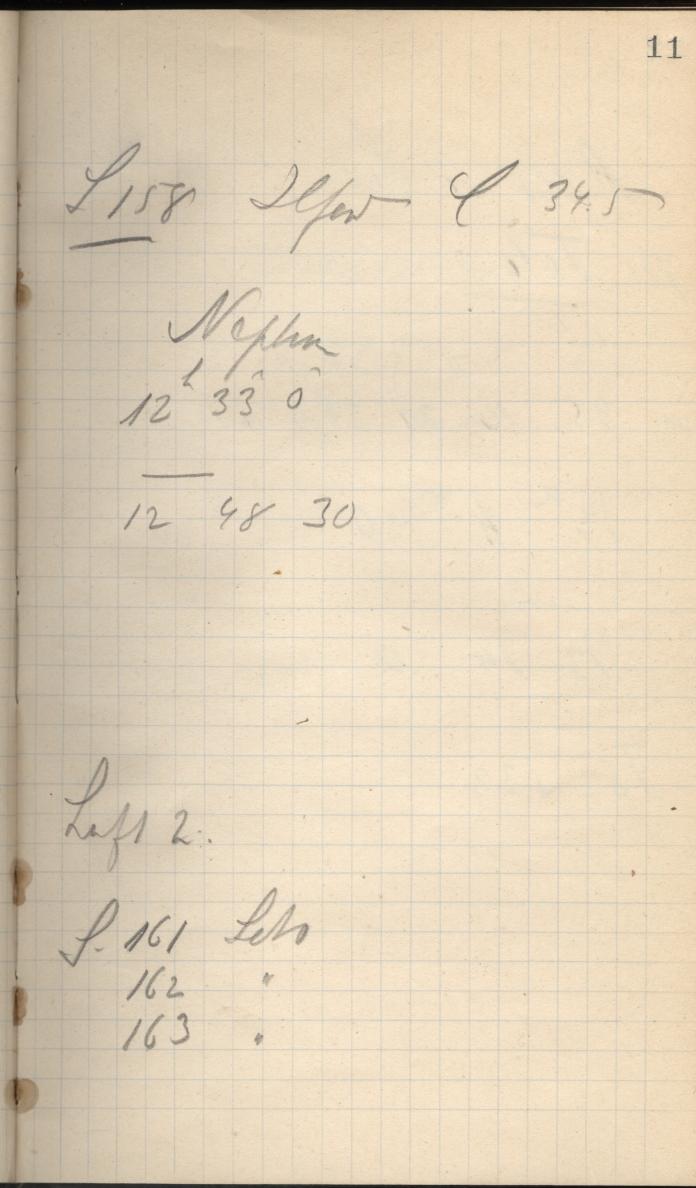 11
S 158 Ilford C 34.5
Neptun
12h 33 0
12 48 30
Luft 2.
S. 161 Leto
162 "
163 "